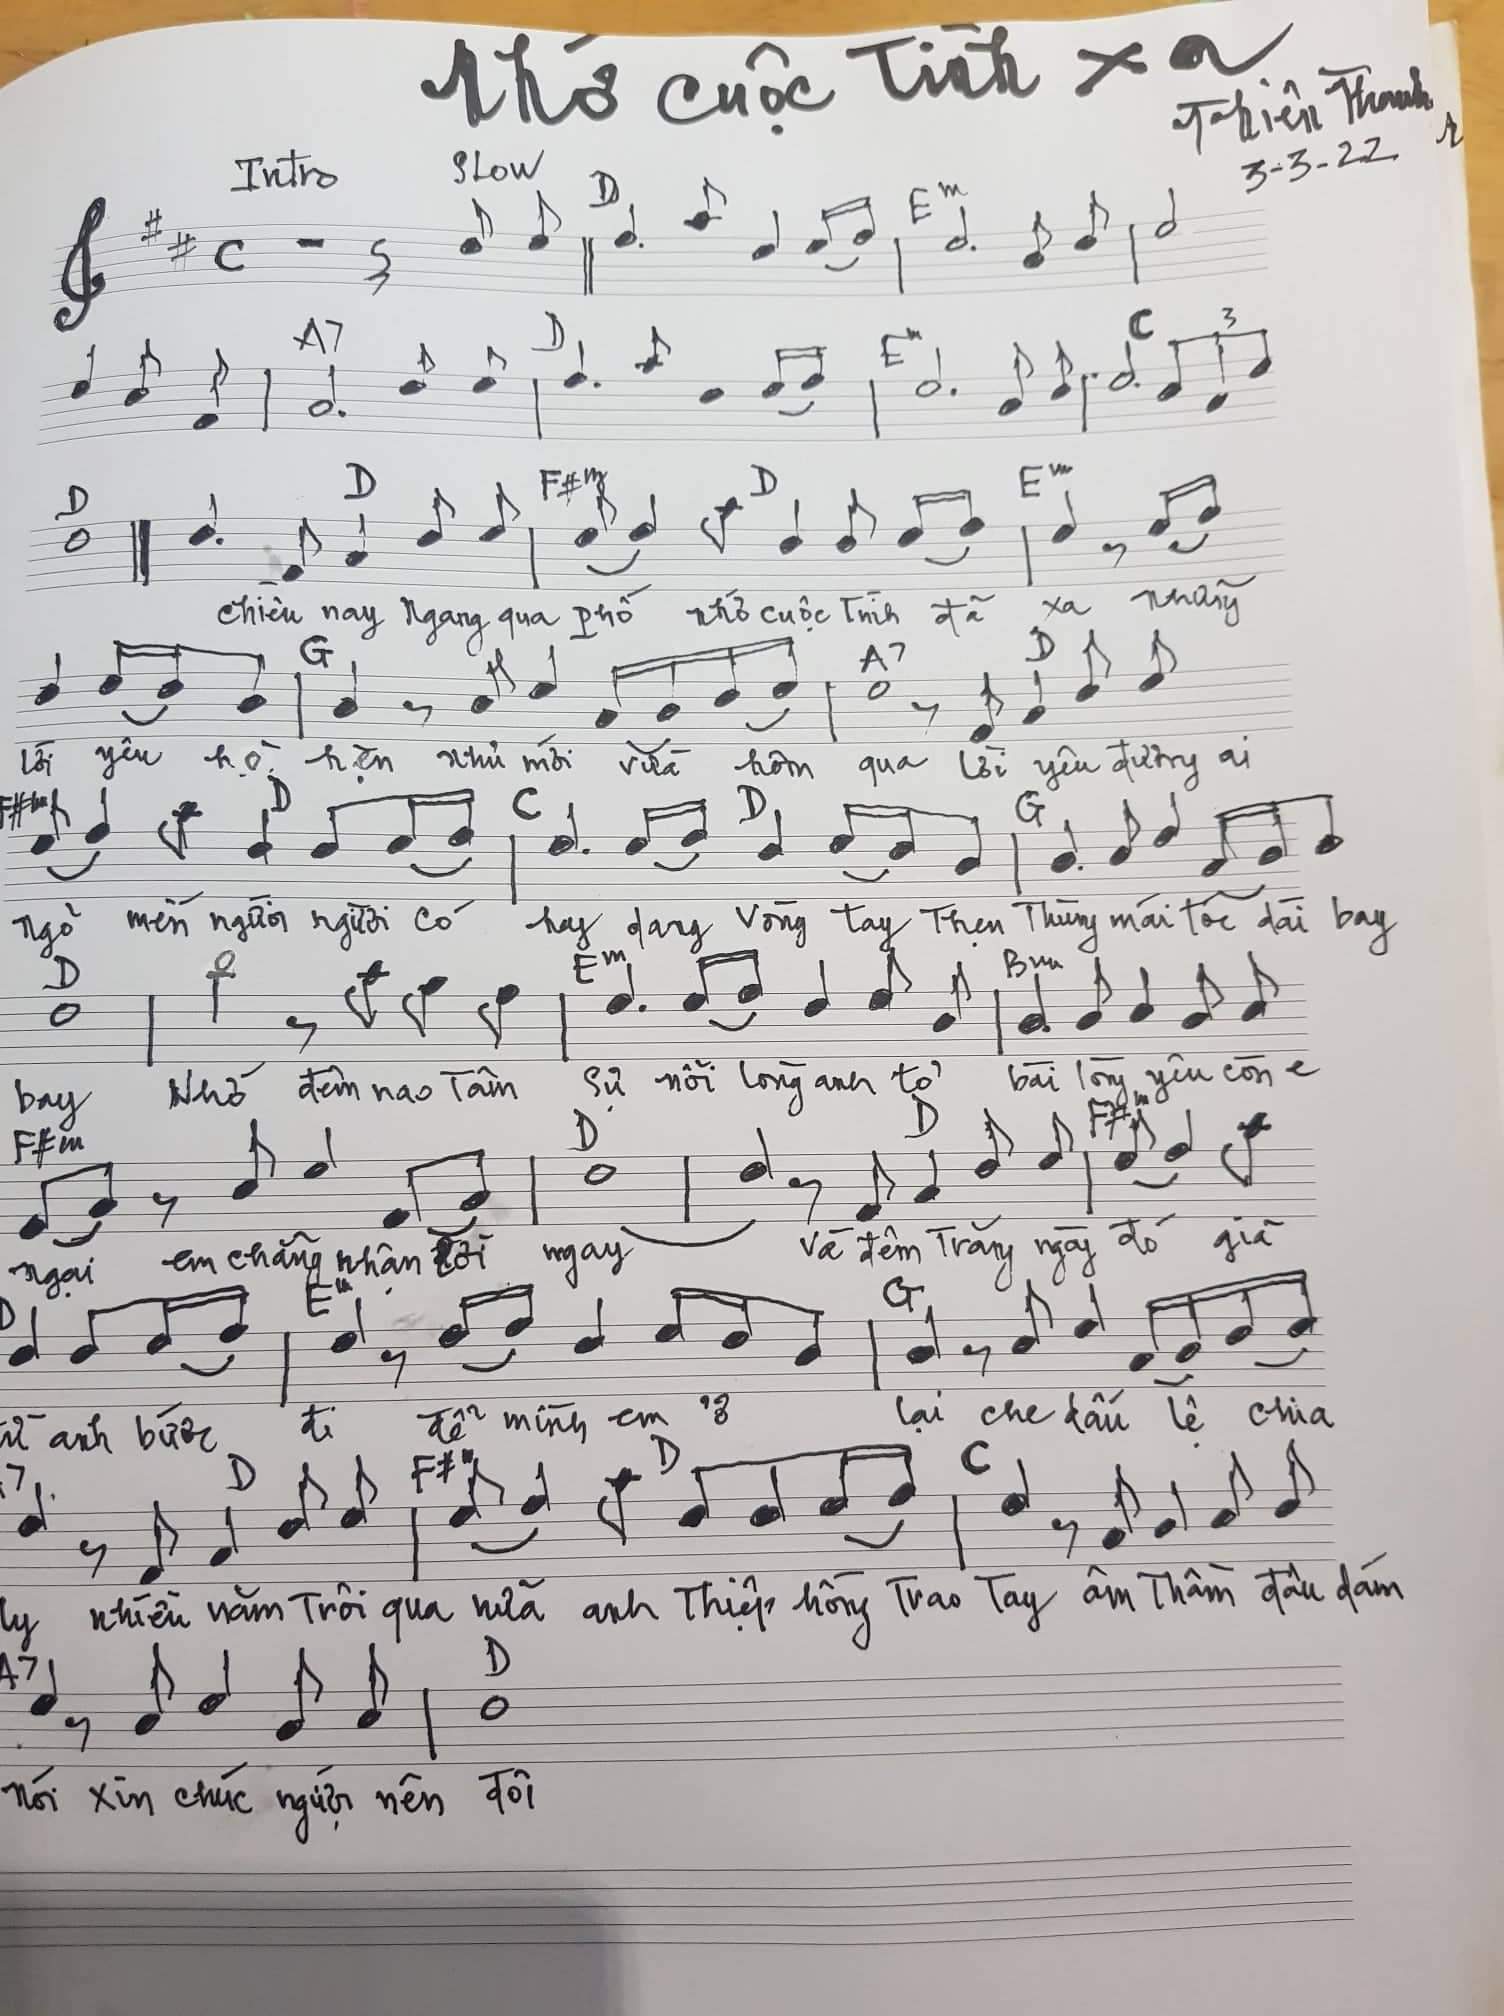 Nhớ cuộc Tình xa
Thiên Thanh
3-3-22
Intro SLOW D Em
A7 D Em C 3
D D F#m D Em
chiều nay ngang qua phố nhớ cuộc Tình đã xa những
G A7 D
lời yêu hò hẹn như mới vừa hôm qua lời yêu đương ai
F#m D C D G
ngỏ mến người người có hay dang vòng tay Thẹn Thùng mái tóc dài bay
D Em Bm
bay Nhớ đêm nao Tâm sự nỗi lòng anh tỏ bài lòng yêu còn e
F#m D D F#m
ngại em chẳng nhận lời ngay Và đêm Trăng ngày đó giã
D Em G
từ anh bước đi để mình em ở lại che dấu lệ chia
A7 D F#m D C
ly nhiều năm Trôi qua nữa anh Thiệp hồng Trao Tay âm Thầm đâu dám
A7 D
nói xin chúc người nên đôi